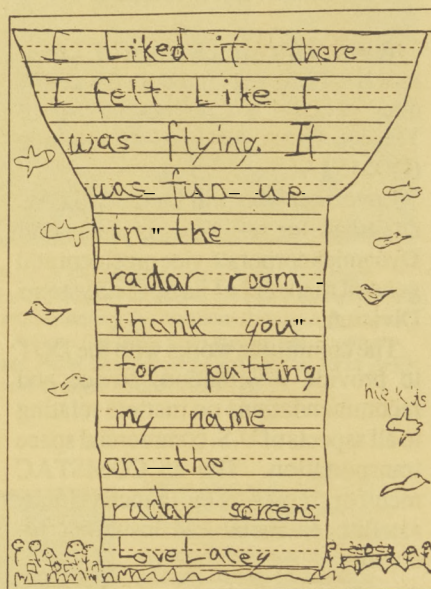 I Liked it there
I felt Like I
was flying. It
was fun up
in the
radar room.
Thank you
for putting
my name
on the
radar screens
Love Lacey
hie kids